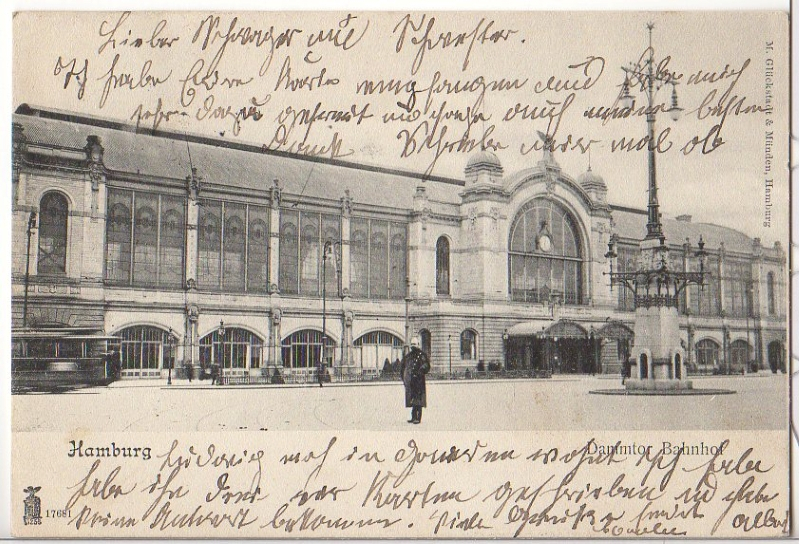 Lieber Schwager und Schwester.
Ich habe Eure Karte empfangen und habe mich
sehr dazu gefreut und sage auch meinen besten
Dank Schreibe mir mal ob
M. Glückstadt & Münden, Hamburg
Hamburg
Dammtor Bahnhof
Ludwig noch in wohnt ich habe
habe ihn drei vier Karten geschrieben und habe
keine Antwort bekommen. Viele
17681